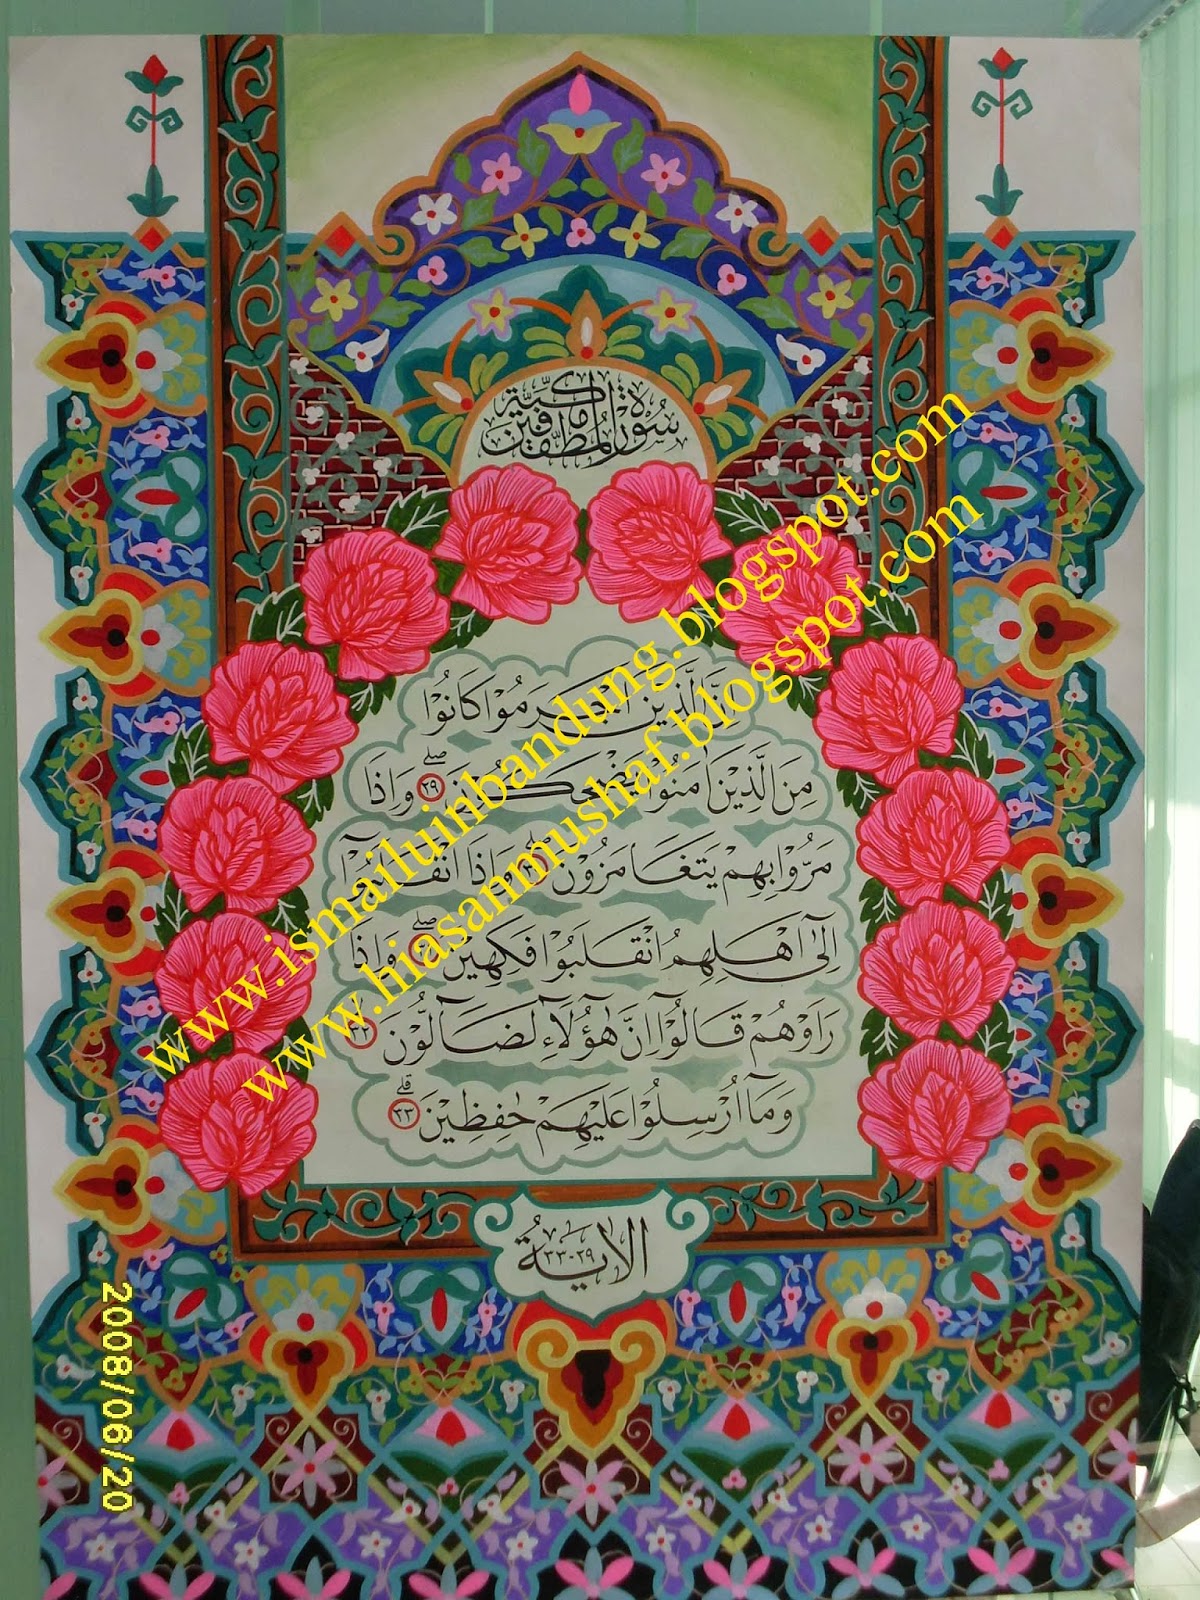 سُوْرَةُ الْمُطَفِّفِيْنَ مَكِّيَّة
اِنَّ الَّذِيْنَ اَجْرَمُوْا كَانُوْا
مِنَ الَّذِيْنَ اٰمَنُوْا يَضْحَكُوْنَ ۖ ٢٩ وَاِذَا
مَرُّوْا بِهِمْ يَتَغَامَزُوْنَ ۖ ٣٠ وَاِذَا انْقَلَبُوْٓا
اِلٰٓى اَهْلِهِمُ انْقَلَبُوْا فَكِهِيْنَ ۖ ٣١ وَاِذَا
رَاَوْهُمْ قَالُوْٓا اِنَّ هٰٓؤُلَاۤءِ لَضَاۤلُّوْنَ ٣٢
وَمَآ اُرْسِلُوْا عَلَيْهِمْ حٰفِظِيْنَ ۗ ٣٣
الاية ٢٩-٣٣
www.ismailuinbandung.blogspot.com
www.hiasanmushaf.blogspot.com
2008/06/20